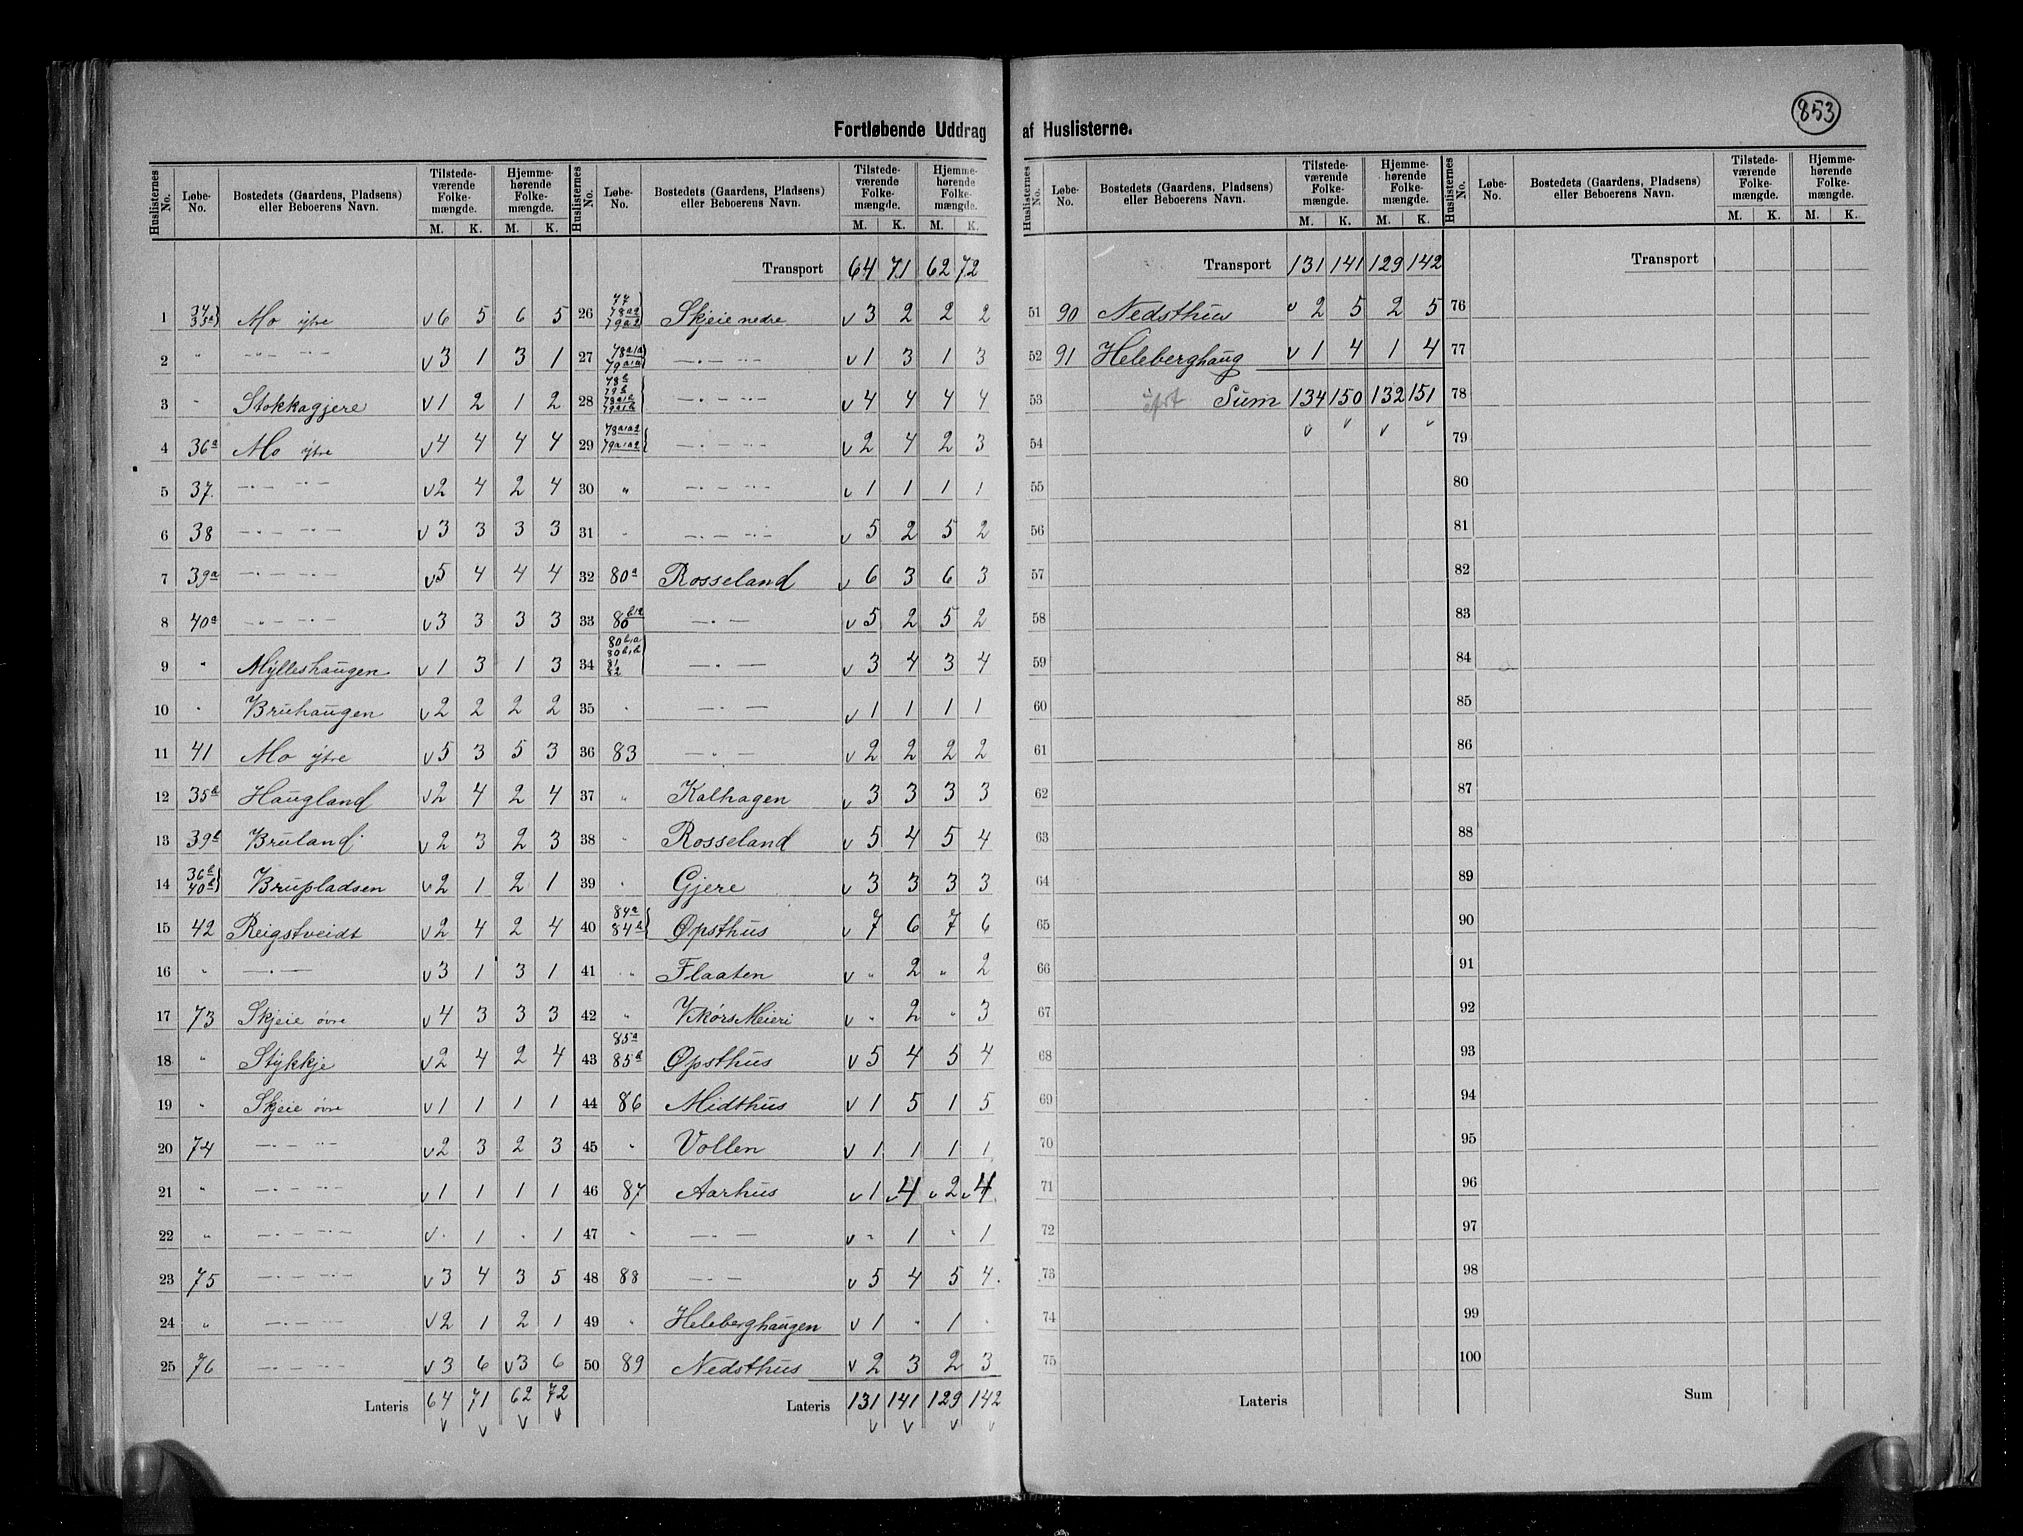 853
Fortløbende Uddrag af Huslisterne.
Huslisternes No. | Løbe-No. | Bostedets (Gaardens, Pladsens) eller Beboerens Navn. | Tilstedeværende Folkemængde. M. K. | Hjemmehørende Folkemængde. M. K.
1 34 35a } Mo ytre v6 5 6 5
2 " —"— —"— v3 1 3 1
3 " Stokkagjere v1 2 1 2
4 36a Mo ytre v4 4 4 4
5 37. —"— —"— v2 4 2 4
6 38 —"— —"— v3 3 3 3
7 39a —"— —"— v5 4 4 4
8 40a —"— —"— v3 3 3 3
9 " Mylleshaugen v1 3 1 3
10 " Bruhaugen v2 2 2 2
11 41 Mo ytre v5 3 5 3
12 35b Haugland v2 4 2 4
13 39b Bruland v2 3 2 3
14 36b 40b } Brupladsen v2 1 2 1
15 42 Reigstveidt v2 4 2 4
16 " —"— v3 1 3 1
17 73 Skjeie øvre v4 3 3 3
18 " Stykkje v2 4 2 4
19 " Skjeie øvre v1 1 1 1
20 74 —"— —"— v2 3 2 3
21 " —"— —"— v1 1 1 1
22 " —"— —"— v" 1 " 1
23 75 —"— —"— v3 4 3 5
24 " —"— —"— v2 1 2 1
25 76 —"— —"— v3 6 v3 6
Lateris 64 71 62 72
v v v v
Huslisternes No. | Løbe-No. | Bostedets (Gaardens, Pladsens) eller Beboerens Navn. | Tilstedeværende Folkemængde. M. K. | Hjemmehørende Folkemængde. M. K.
Transport 64 71 62 72
26 77 78a2 79a2 Skjeie nedre v3 2 2 2
27 78a1a 79a1a } —"— —"— v1 3 1 3
28 78b 79b 78a1b 79a1b } —"— —"— v4 4 4 4
29 78a1a2 79a1a2 { —"— —"— v2 4 2 3
30 " —"— —"— v1 1 1 1
31 " —"— —"— v5 2 5 2
32 80a Rosseland v6 3 6 3
33 80b12 —"— v5 2 5 2
34 80b1a 80b1b 81 82 } —"— v3 4 3 4
35 " —"— v1 1 1 1
36 83 —"— v2 2 2 2
37 " Kalhagen v3 3 3 3
38 " Rosseland v5 4 5 4
39 " Gjere v3 3 3 3
40 84a 84b } Opsthus v7 6 7 6
41 " Flaaten v " 2 " 2
42 " Vikørs Meieri v " 2 " 3
43 85a 85b Opsthus v5 4 5 4
44 86 Midthus v1 5 1 5
45 " Vollen v1 1 1 1
46 87 Aarhus v1 v4 v2 v4
47 " —"— v " 1 " 1
48 88 —"— v5 4 5 4
49 " Heleberghaugen v1 " 1 "
50 89 Nedsthus v2 3 2 3
Lateris 131 141 129 142
v v v v
Huslisternes No. | Løbe-No. | Bostedets (Gaardens, Pladsens) eller Beboerens Navn. | Tilstedeværende Folkemængde. M. K. | Hjemmehørende Folkemængde. M. K.
Transport 131 141 129 142
51 90 Nedsthus v2 5 2 5
52 91 Heleberghaug v1 4 1 4
53 Sum 134 150 132 151
54 v v v v
55
56
57
58
59
60
61
62
63
64
65
66
67
68
69
70
71
72
73
74
75
Lateris
Huslisternes No. | Løbe-No. | Bostedets (Gaardens, Pladsens) eller Beboerens Navn. | Tilstedeværende Folkemængde. M. K. | Hjemmehørende Folkemængde. M. K.
Transport
76
77
78
79
80
81
82
83
84
85
86
87
88
89
90
91
92
93
94
95
96
97
98
99
100
Sum